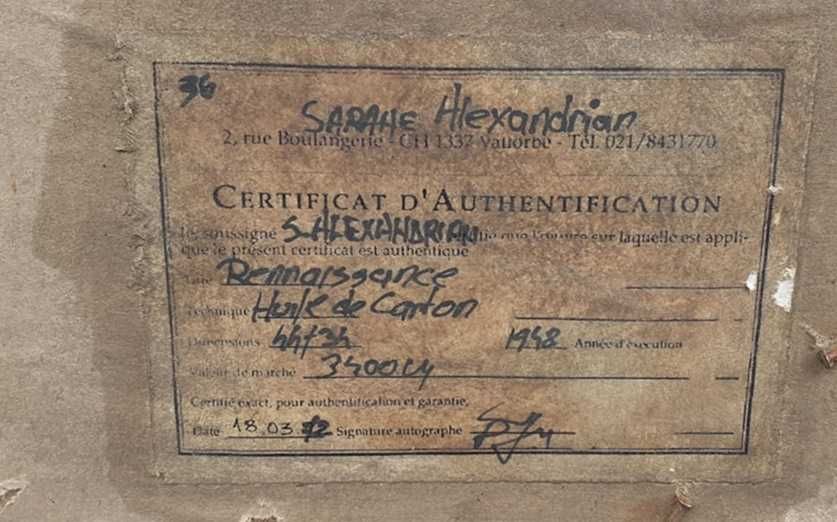 36
SARAHE Alexandrian
2, rue Boulangerie - CH 1337 Vallorbe - Tél. 021/8431770
CERTIFICAT D'AUTHENTIFICATION
Je, soussigné S. ALEXANDRIAN que l'œuvre sur laquelle est appli-
que le présent certificat est authentique
Titre Rennaissance
Technique Huile de Carton
Dimensions 44/34 1948 Année d'exécution
Valeur de marché 3400
Certifié exact, pour authentification et garantie,
Date 18.03. Signature autographe